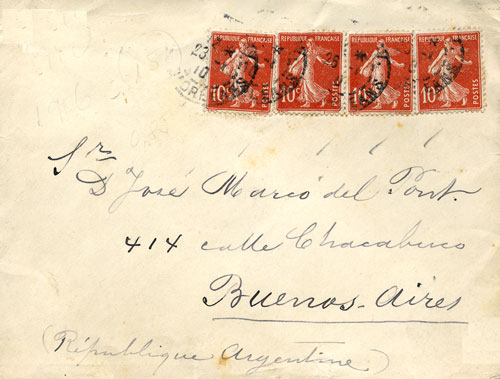 REPUBLIQUE FRANÇAISE REPUBLIQUE FRANÇAISE REPUBLIQUE FRANÇAISE REPUBLIQUE FRANÇAISE
10c POSTES 10c POSTES POSTES 10 POSTES
Sr
D José Marcó del Pont.
414 calle Chacabuco
Buenos-Aires
(République Argentine)